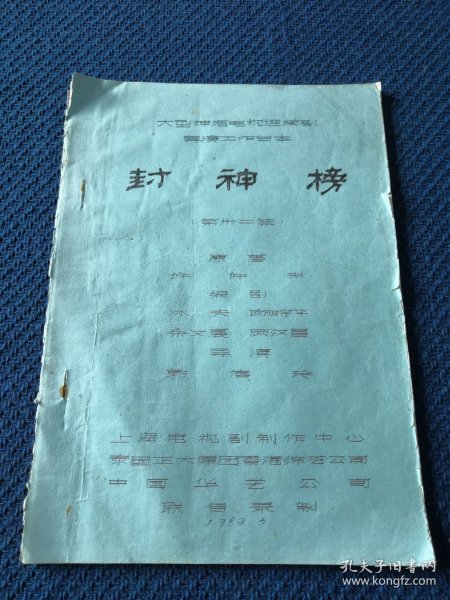 大型神话电视连续剧
导演工作台本
封神榜
(第卅二集)
原著
许仲琳
编剧
冰夫 欧阳
导演
郭信玲
上海电视剧制作中心
泰国正大集团香港综艺公司
中国华艺公司
联合录制
1989.3
孔夫子旧书网
www.kongfz.com